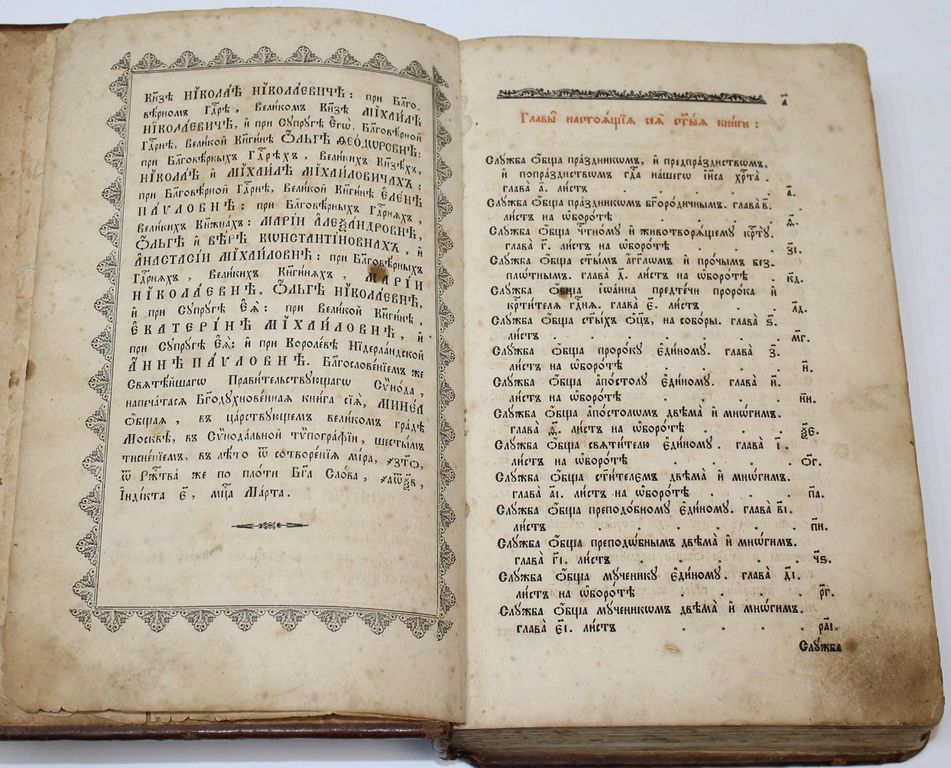 Кн҃зѣ НІКОЛАѢ НІКОЛАЕВИЧѢ: при Бл҃го-
вѣрномъ Гдⷭ҇рѣ, Великомъ Кн҃зѣ МІХАИЛѢ
НІКОЛАЕВИЧѢ, и҆ при Сꙋпрꙋгѣ Е҆гѡ̀, Бл҃говѣрной
Гдⷭ҇рнѣ, Великой Кн҃гинѣ Ѻ҆ЛЬГѢ ѲЕОДѠРОВНѢ:
при Бл҃говѣрныхъ Гдⷭ҇рѣхъ, Великихъ Кн҃зѣхъ,
НІКОЛАѢ и҆ МІХАИЛѢ МІХАИЛОВИЧАХЪ:
при Бл҃говѣрной Гдⷭ҇рнѣ, Великой Кн҃гинѣ Е҆ЛЕНѢ
ПАѴЛОВНѢ: при Бл҃говѣрныхъ Гдⷭ҇рняхъ,
Великихъ Кн҃жнахъ: МАРІИ АЛЕѮАНДРОВНѢ,
Ѻ҆ЛЬГѢ и҆ ВѢРѢ КѠНСТАНТІНОВНАХЪ, и҆
АНАСТАСІИ МІХАИЛОВНѢ: при Бл҃говѣрныхъ
Гдⷭ҇рняхъ, Великихъ Кн҃гиняхъ, МАРІИ
НІКОЛАЕВНѢ, Ѻ҆ЛЬГѢ НІКОЛАЕВНѢ,
и҆ при Сꙋпрꙋгѣ Е҆ѧ̀: при Великой Кн҃гинѣ,
Е҆КАТЕРІНѢ МІХАИЛОВНѢ, и҆
при Сꙋпрꙋгѣ Е҆ѧ̀: и҆ при Королевѣ Нідерландской
А҆ННѢ ПАѴЛОВНѢ. Бл҃гословеніемъ же
Свѧтѣйшагѡ Правительствꙋющагѡ Сѵно́да,
напечатасѧ Бг҃одꙋхновеннаѧ книга сіѧ̀, МИНЕА
Ѻ҆бщаѧ, въ царствꙋющемъ великомъ градѣ
Москвѣ, въ Сѵнодальной тѵпографіи, шестымъ
тисненіемъ, въ лѣто ѿ сотворенія міра, ҂зто҃,
ѿ Рждⷭ҇тва̀ же по плоти Бг҃а Слова, ҂аѿѯв҃,
І҆ндікта е҃, мцⷭ҇а Марта.
а҃
Главы̀ настоѧщіѧ сеѧ̀ ст҃ыѧ книги:
Слꙋжба ѻ҆бщаѧ праздникѡмъ, и҆ предпразднствѡмъ,
и҆ попразднствѡмъ гдⷭ҇а нашегѡ і҆и҃са хрⷭ҇та̀.
глава̀ а҃. листъ . . . . . . а҃.
Слꙋжба ѻ҆бщаѧ праздникѡмъ бг҃ородичнымъ. глава̀ в҃.
листъ на ѡ҆боротѣ . . . . . д҃.
Слꙋжба ѻ҆бщаѧ чⷭ҇тномꙋ и҆ животворѧщемꙋ крⷭ҇тꙋ.
глава̀ г҃. листъ на ѡ҆боротѣ . . . . зі҃.
Слꙋжба ѻ҆бщаѧ ст҃ымъ а҆гг҃лѡмъ и҆ прочымъ без-
плѡтнымъ. глава̀ д҃. листъ на ѡ҆боротѣ . кд҃.
Слꙋжба ѻ҆бщаѧ і҆ѡанна предтечи пророка и҆
крⷭ҇тителѧ гдⷭ҇нѧ. глава̀ е҃. листъ . . . лд҃.
Слꙋжба ѻ҆бщаѧ ст҃ыхъ ѻ҆ц҃ъ, на соборы. глава̀ ѕ҃.
листъ . . . . . . . мг҃.
Слꙋжба ѻ҆бщаѧ пророкꙋ е҆диномꙋ. глава̀ з҃.
листъ на ѡ҆боротѣ . . . . . н҃.
Слꙋжба ѻ҆бщаѧ а҆постолꙋ е҆диномꙋ. глава̀ и҃.
листъ на ѡ҆боротѣ . . . . . ни҃.
Слꙋжба ѻ҆бщаѧ а҆постолѡмъ двѣма̀ и҆ мнѡгимъ.
глава̀ ѳ҃. листъ на ѡ҆боротѣ . . . ѯе҃.
Слꙋжба ѻ҆бщаѧ свѧтителю е҆диномꙋ. глава̀ і҃.
листъ на ѡ҆боротѣ . . . . . ог҃.
Слꙋжба ѻ҆бщаѧ ст҃ителемъ двѣма̀ и҆ мнѡгимъ.
глава̀ аі҃. листъ на ѡ҆боротѣ . . . па҃.
Слꙋжба ѻ҆бщаѧ преподобномꙋ е҆диномꙋ. глава̀ ві҃.
листъ . . . . . . . пи҃.
Слꙋжба ѻ҆бщаѧ преподѡбнымъ двѣма̀ и҆ мнѡгимъ.
глава̀ гі҃. листъ . . . . . чѕ҃.
Слꙋжба ѻ҆бщаѧ мꙋченикꙋ е҆диномꙋ. глава̀ ді҃.
листъ на ѡ҆боротѣ . . . . . рг҃.
Слꙋжба ѻ҆бщаѧ мꙋченикѡмъ двѣма̀ и҆ мнѡгимъ.
глава̀ еі҃. листъ . . . . . раі҃.
Слꙋжба